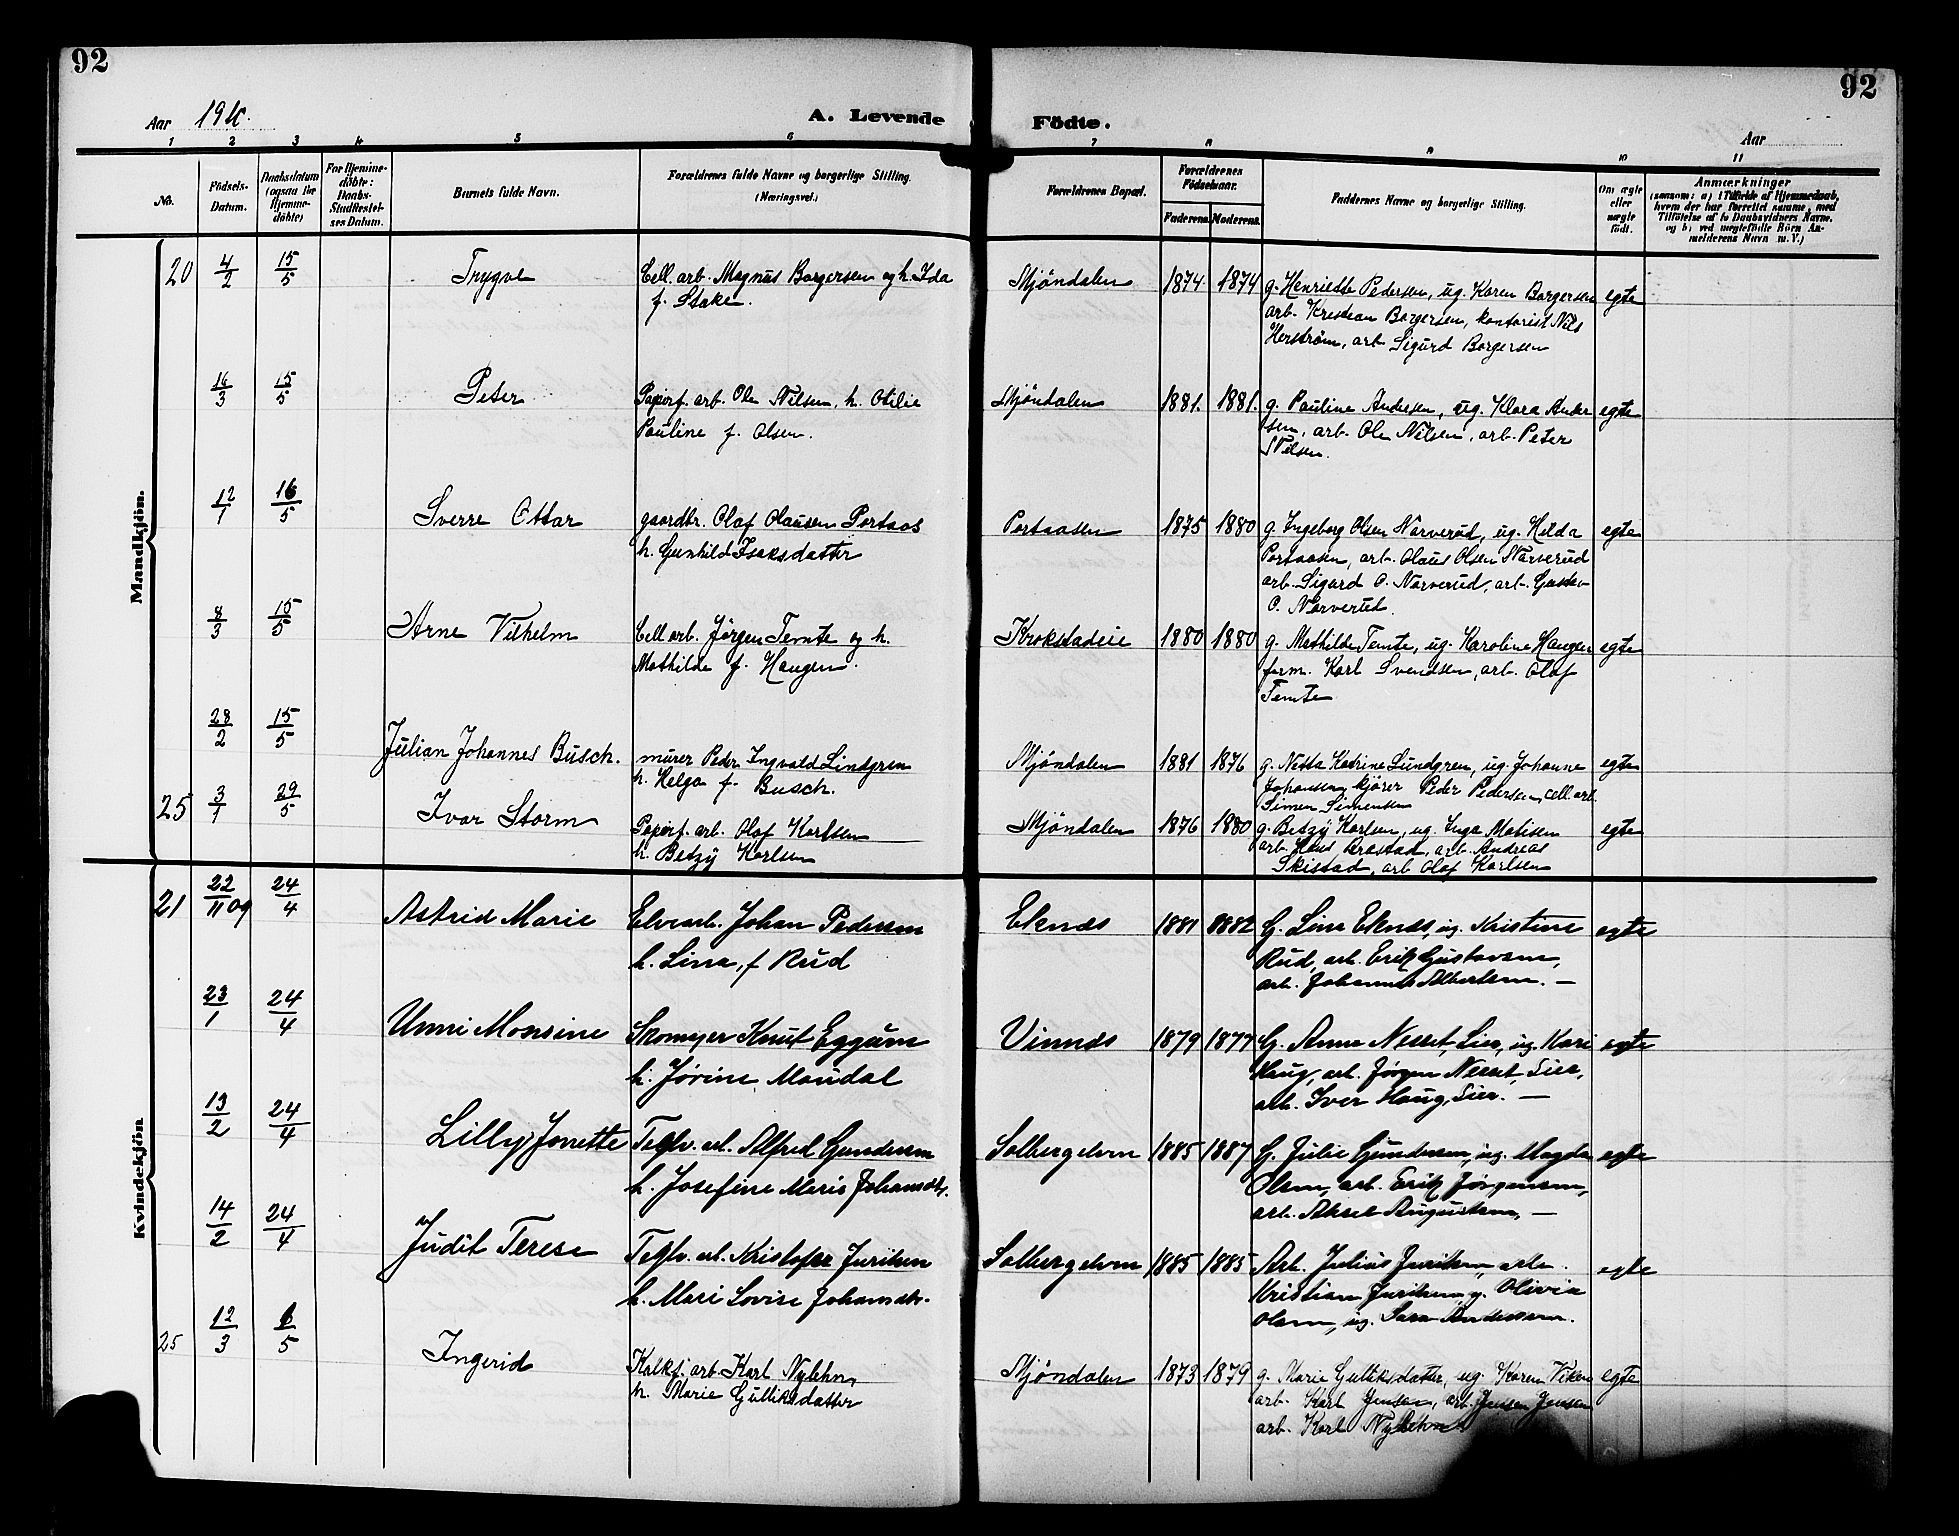 92
92
Aar 1910.
A. Levende
Födte.
Aar
1 2 3 4 5 6 7 8 9 10 11
No.
Födsels-Datum.
Daabsdatum (ogsaa for Hjemme-döbte)
For Hjemme-döbte: Daabs-Stadfæstel-ses Datum.
Barnets fulde Navn.
Forældrenes fulde Navne og borgerlige Stilling. (Næringsvei.)
Forældrenes Bopæl.
Forældrenes Födselsaar.
Faderens. Moderens.
Faddernes Navne og borgerlige Stilling.
Om ægte eller uægte födt.
Anmærkninger
(saasom: a) Tilfælde af Hjemmedaab, hvem der har forrettet samme, med Tilföielse af to Daabsvidners Navne. og b) ved uægtefödte Börn An-melderens Navn m. V.)
Mandkjön.
20 4/2 15/5 Trygve Cell. arb. Magnus Borgersen og h. Ida Mjöndalen 1874 1874 g. Henriette Pedersen, ug. Karen Borgersen egte
f. Stake. arb. Kristian Borgersen, kontorist Nils
Herström, arb Sigurd Borgersen
16/3 15/5 Peter Papirf. arb. Ole Nilsen, h. Otilie Mjöndalen 1881. 1881. g. Pauline Andersen, ug. Klara Ander egte
Pauline f. Olsen. sen, arb. Ole Nilsen, arb. Peter
Nilsen.
12/1 16/5 Sverre Ottar gaardbr. Olaf Olausen Portaas Portaasen 1875 1880 g. Ingeborg Olsen Narverud, ug. Hilda egte
h. Gunhild Isaksdatter Portaasen, arb. Olaus Olsen Narverud
arb. Sigurd O. Narverud, arb. Gustav
O. Narverud.
8/3 15/5 Arne Vilhelm Cell arb. Jörgen Temte og h. Krokstadeie 1880 1880 g. Mathilde Temte, ug. Karoline Haugen egte
Mathilde f. Haugen. form. Karl Svendsen, arb. Olaf
Temte
28/2 15/5 Julian Johannes Busch. murer Peder Ingvald Lindgren Mjöndalen 1881 1876 g. Netta Katrine Lundgren, ug. Johanne egte
h. Helga f. Busch. Johansen, kjörer Peder Pedersen, cell. arb.
Simen Simensen
25 3/1 29/5 Ivar Storm Papirf. arb. Olaf Karlsen Mjöndalen 1876 1880 g. Betzy Karlsen, ug. Inga Matisen egte
h. Betzy Karlsen arb. Hans arb. Andreas
Skistad, arb Olaf Karlsen
Kvindekjön
21 22/11 09 24/4 Astrid Marie Elvearb. Johan Pedersen Eknes 1881 1882 G. Lina Eknes, ug. Kristine egte
h. Lina, f Rud Rud, arb. Erik Gustavsen,
arb. Johannes Albertsen. —
23/1 24/4 Unni Monsine Skomager Knut Eggum Vinnes 1879 1877 G. Anna Nesset, Lier, ug. Kari egte
h. Jörine Maudal Haug, arb. Jörgen Nesset, Lier,
arb. Iver Haug, Lier. —
13/2 24/4 Lilly Jonette Teglv. arb. Alfred Gundersen Solbergelven 1885 1887 G. Julie Gundersen, ug. Magda egte
h. Josefine Marie Johansdtr. Olsen, arb. Erik Jörgensen,
arb. Aksel Augustsen, —
14/2 24/4 Judit Terese Teglv. arb. Kristofer Juriksen Solbergelven 1885 1885 Arb. Julius Juriksen, arb. egte
h. Mari Lovise Johansdtr. Kristian Juriksen, g. Olivia
Olsen, ug. Sara Andersen.
25 12/3 6/5 Ingerid Kalkf. arb. Karl Nylehn, Mjöndalen 1873 1879 g. Marie Gulliksdatter, ug. Karen Viken egte
h. Marie Gulliksdatter arb. Karl Jensen, arb. Jensen
arb. Karl Nylehn